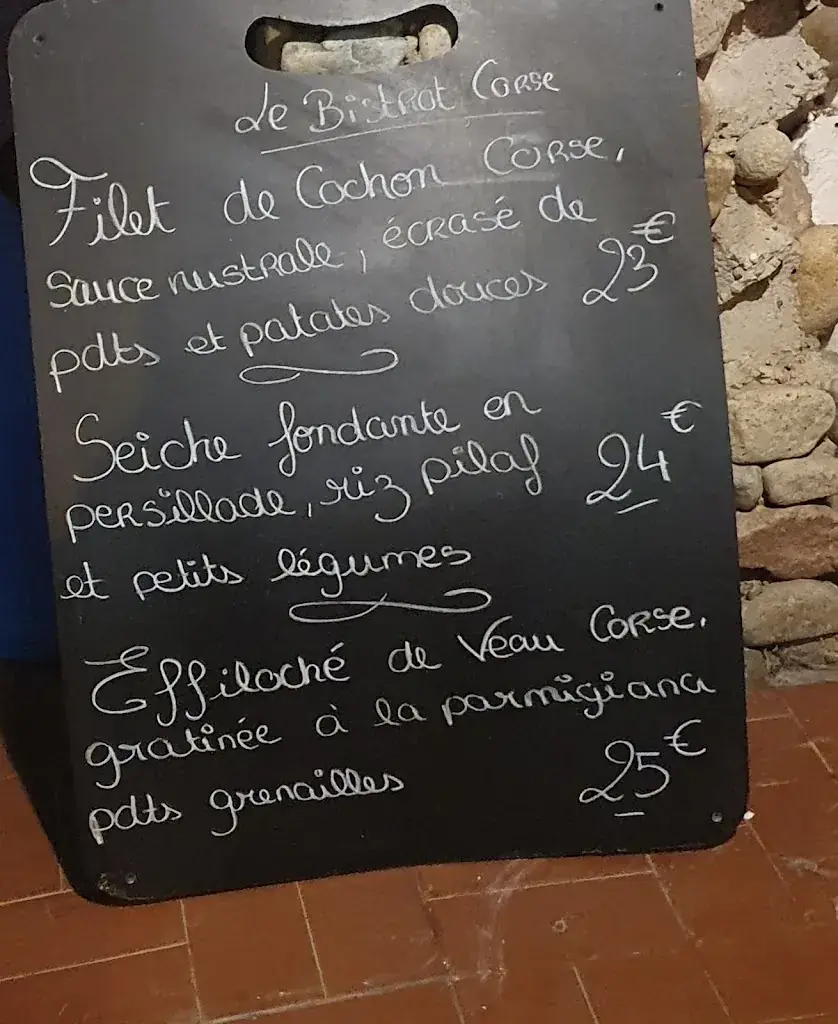 Le Bistrot Corse
Filet de Cochon Corse,
sauce nustrale, écrasé de
pdts et patates douces 23€
Seiche fondante en
persillade, riz pilaf 24€
et petits légumes
Effiloché de Veau Corse,
gratinée à la parmigiana
pdts grenailles 25€